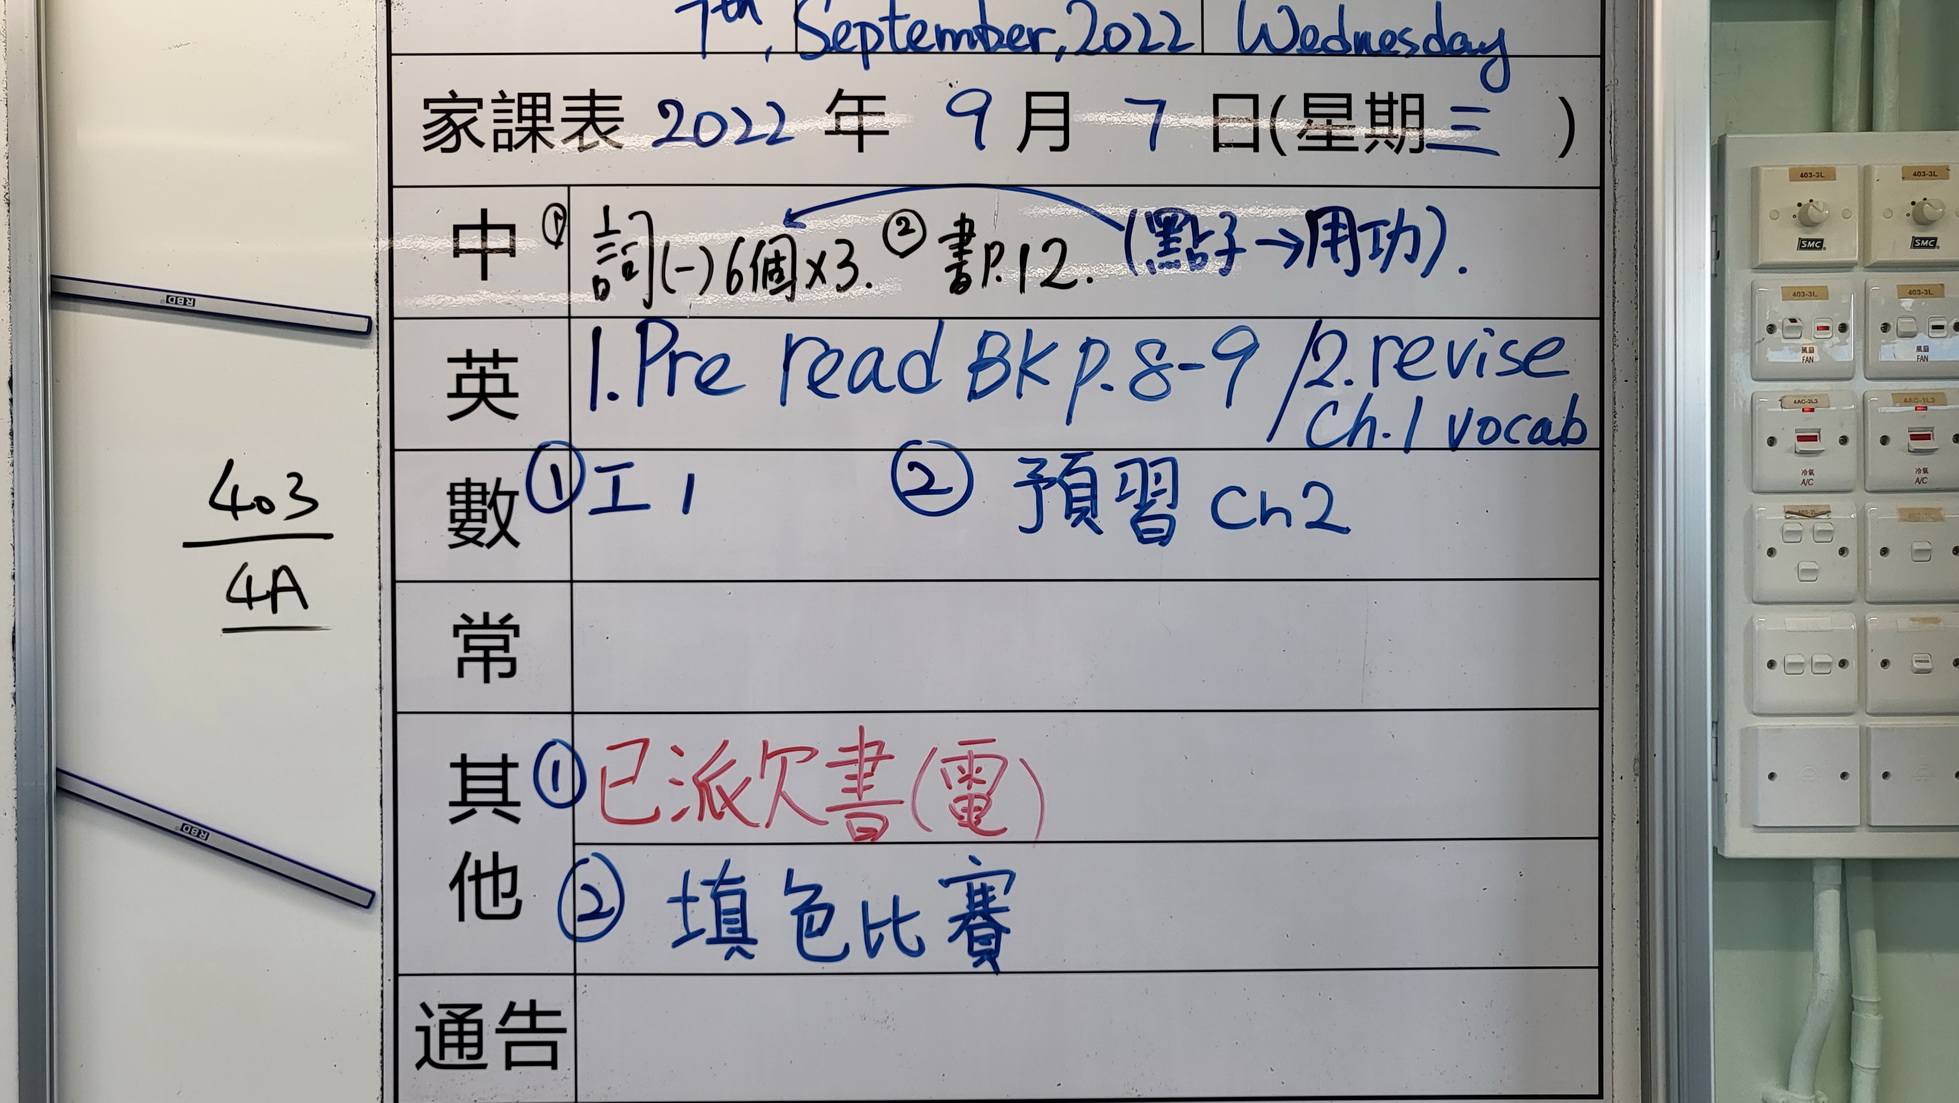 7th, September, 2022 Wednesday
家課表 2022 年 9 月 7 日(星期三 )
中 ① 詞(一)6個x3. ② 書P.12. (點子→用功).
英 1. Pre read BK p. 8-9 / 2. revise
Ch. 1 vocab
數 ① 工1 ② 預習 Ch2
常
其他 ① 已派欠書(電)
② 填色比賽
通告
403
4A
RBD
RBD
403-3L
403-3L
SMC
SMC
403-3L
403-3L
風扇
FAN
風扇
FAN
4AC-3L3
4AC-1L3
冷氣
A/C
冷氣
A/C